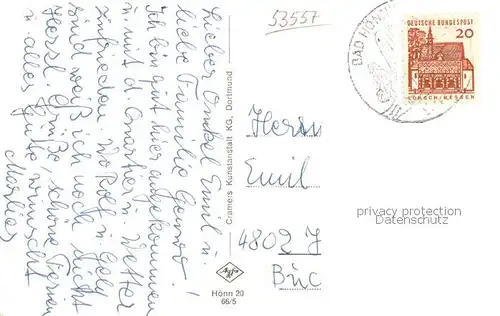 53557
Lieber Onkel Emil u.
liebe Familie
Ich bin gut hier angekommen
u. mit d. Quartier u. Wetter
zufrieden. Wo Rolf u.
sind weiß ich noch nicht
Herzl. Grüße, schöne Ferien
u. alles Gute, wünscht
Cramers Kunstanstalt KG, Dortmund
Hönn 20
66/5
Agfa
BAD HÖN
DEUTSCHE BUNDESPOST
20
LORSCH/HESSEN
Herrn
Emil
4802
privacy protection
Datenschutz